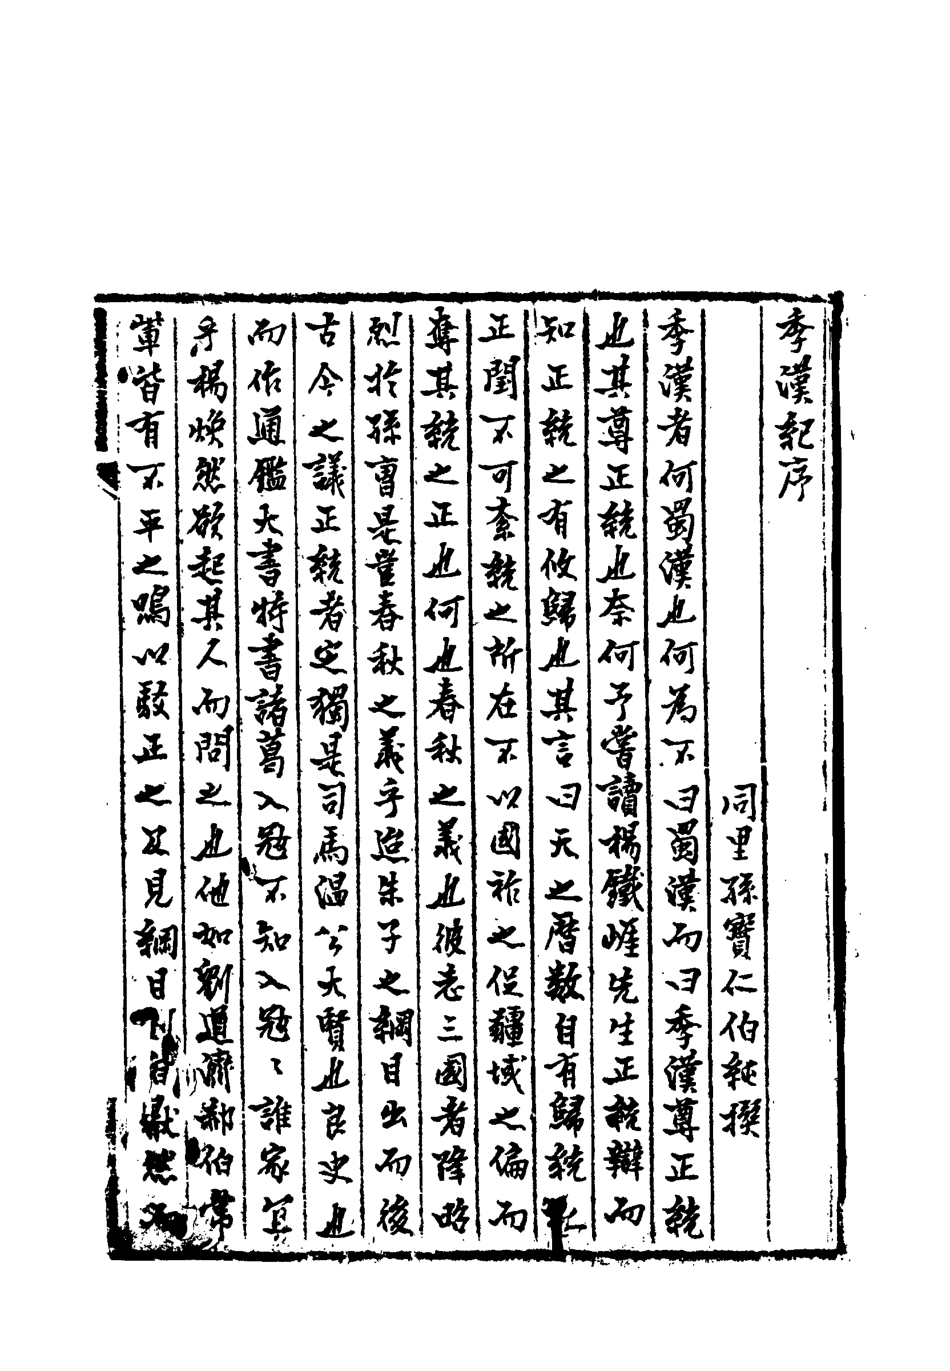 季漢紀序
同里孫寶仁伯純撰
季漢者何蜀漢也何為不曰蜀漢而曰季漢尊正統
也其尊正統也奈何予嘗讀楊鐵崖先生正統辯而
知正統之有攸歸也其言曰天之曆数自有歸統之
正閏不可紊統之所在不以國祚之促疆域之偏而
奪其統之正也何也春秋之義也彼志三國者降昭
烈於孫曹是豈春秋之義乎迨朱子之綱目出而後
古今之議正統者定獨是司馬温公大賢也良史也
而作通鑑大書特書諸葛入冦不知入冦〻誰家宜
乎楊煥然欲起其人而問之也他如劉道濟鄒伯常
輩皆有不平之鳴以駁正之及見綱目自獻然而